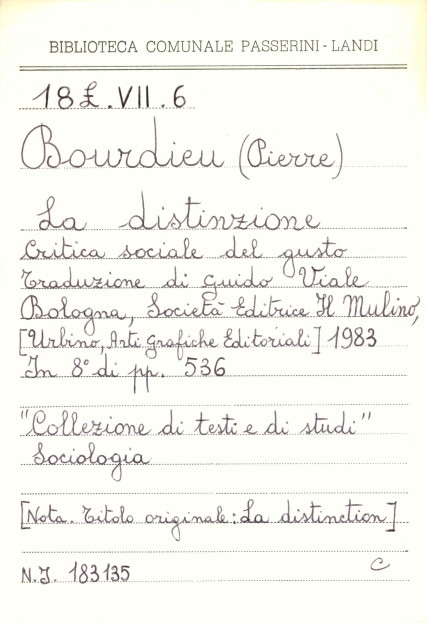 BIBLIOTECA COMUNALE PASSERINI - LANDI
18£.VII.6
Bourdieu (Pierre)
La distinzione
Critica sociale del gusto
Traduzione di Guido Viale
Bologna, Società Editrice Il Mulino,
[Urbino, Arti Grafiche Editoriali] 1983
In 8° di pp. 536
"Collezione di testi e di studi"
Sociologia
[Nota. Titolo originale: La distinction]
N.I. 183135
C